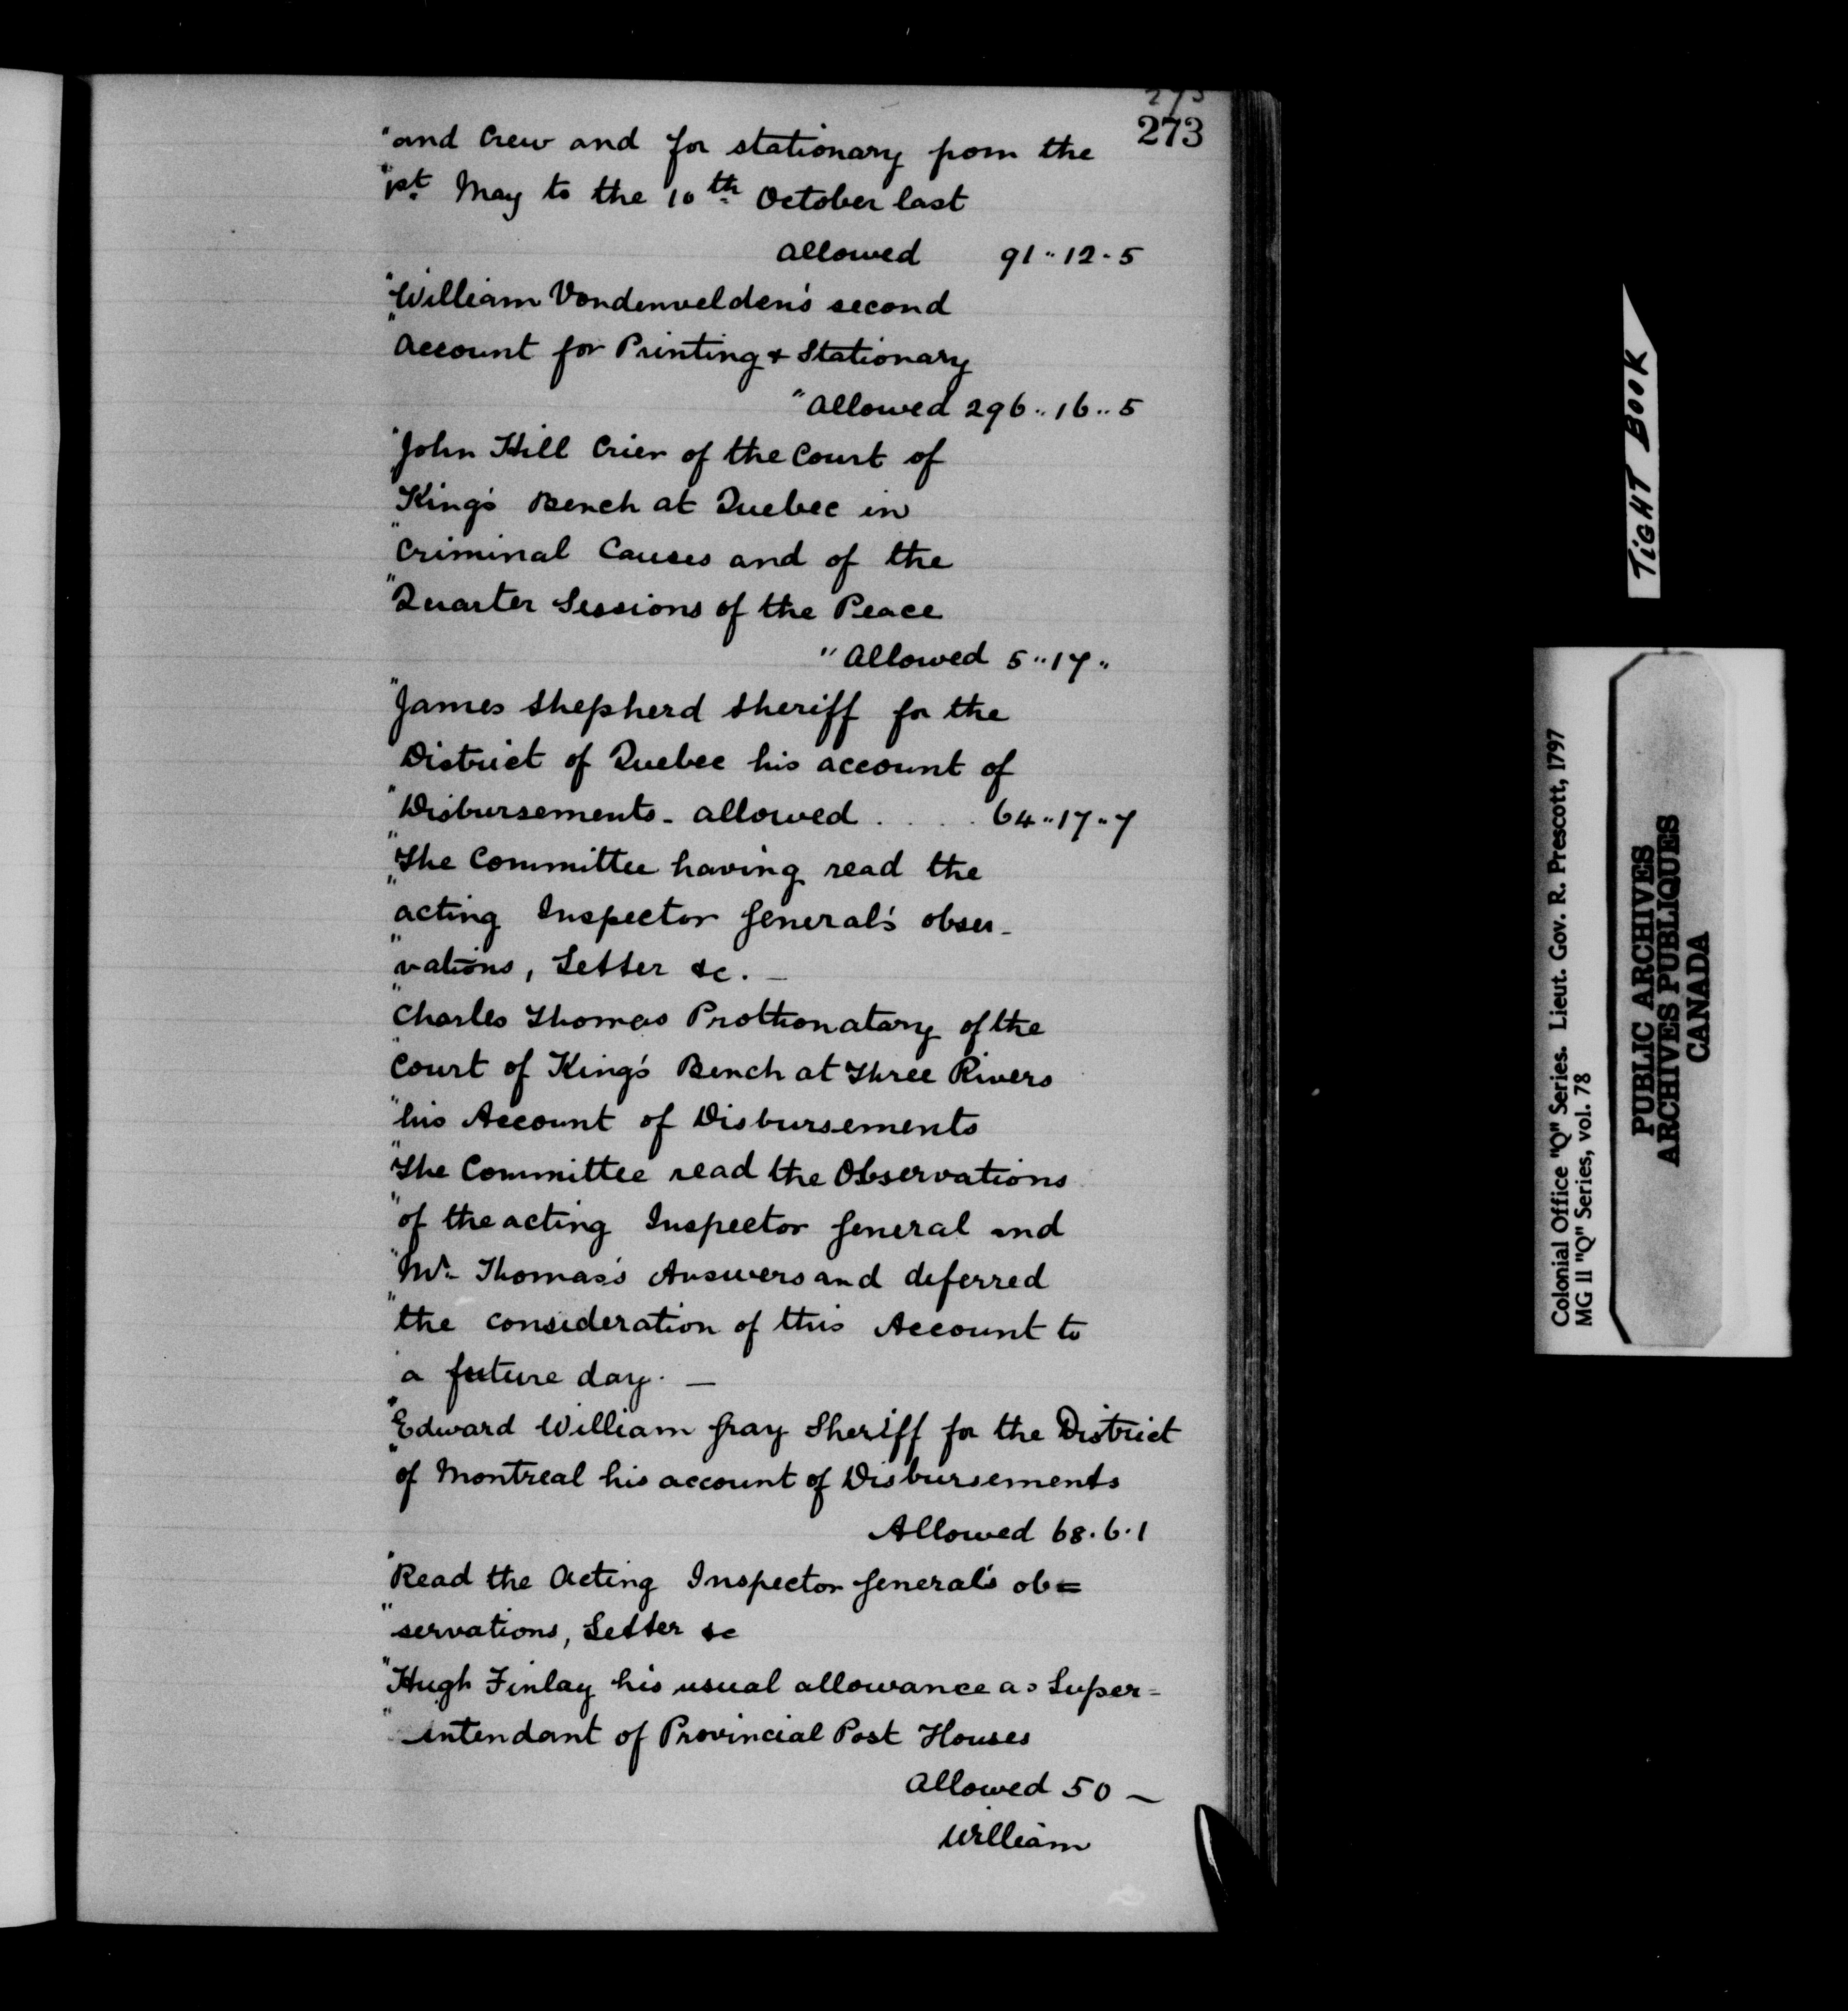 273
273
"and Crew and for stationary from the
"1st. May to the 10th. October last
allowed 91..12.5
"William Vondenvelden's second
"account for Printing & Stationary
"allowed 296..16..5
"John Hill Crier of the Court of
"King's Bench at Quebec in
"Criminal Causes and of the
"Quarter Sessions of the Peace
"allowed 5..17..
"James Shepherd Sheriff for the
District of Quebec his account of
"Disbursements - allowed . . . . 64..17..7
"The Committee having read the
"acting Inspector General's obser-
"vations, Letter &c. —
"Charles Thomas Prothonatary of the
"Court of King's Bench at Three Rivers
"his Account of Disbursements
"The Committee read the Observations
"of the acting Inspector General and
"Mr. Thomas's Answers and deferred
"the consideration of this Account to
"a future day. —
"Edward William Gray Sheriff for the District
"of Montreal his account of Disbursements
Allowed 68.6.1
"Read the Acting Inspector General's ob=
"servations, Letter &c
"Hugh Finlay his usual allowance as Super=
"intendant of Provincial Post Houses
allowed 50 —
William
TIGHT BOOK
Colonial Office "Q" Series. Lieut. Gov. R. Prescott, 1797
MG 11 "Q" Series, vol. 78
PUBLIC ARCHIVES
ARCHIVES PUBLIQUES
CANADA